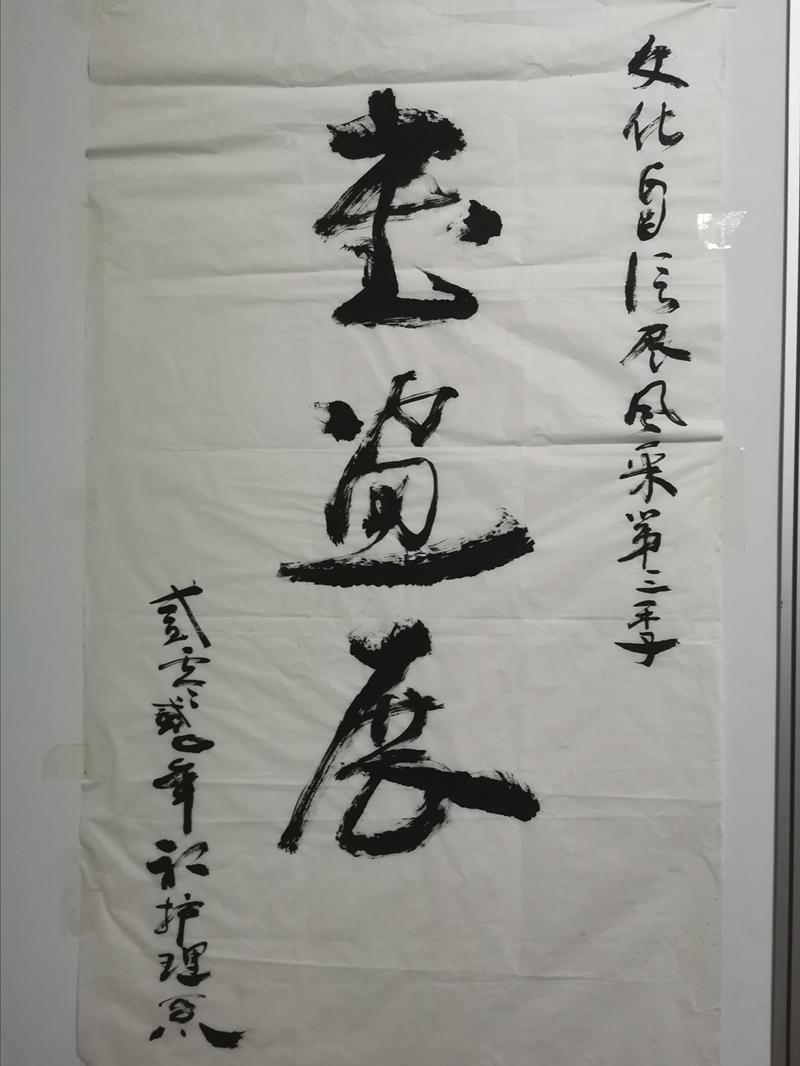 文化自信展风采第二季
书画展
贰零贰零年 护理